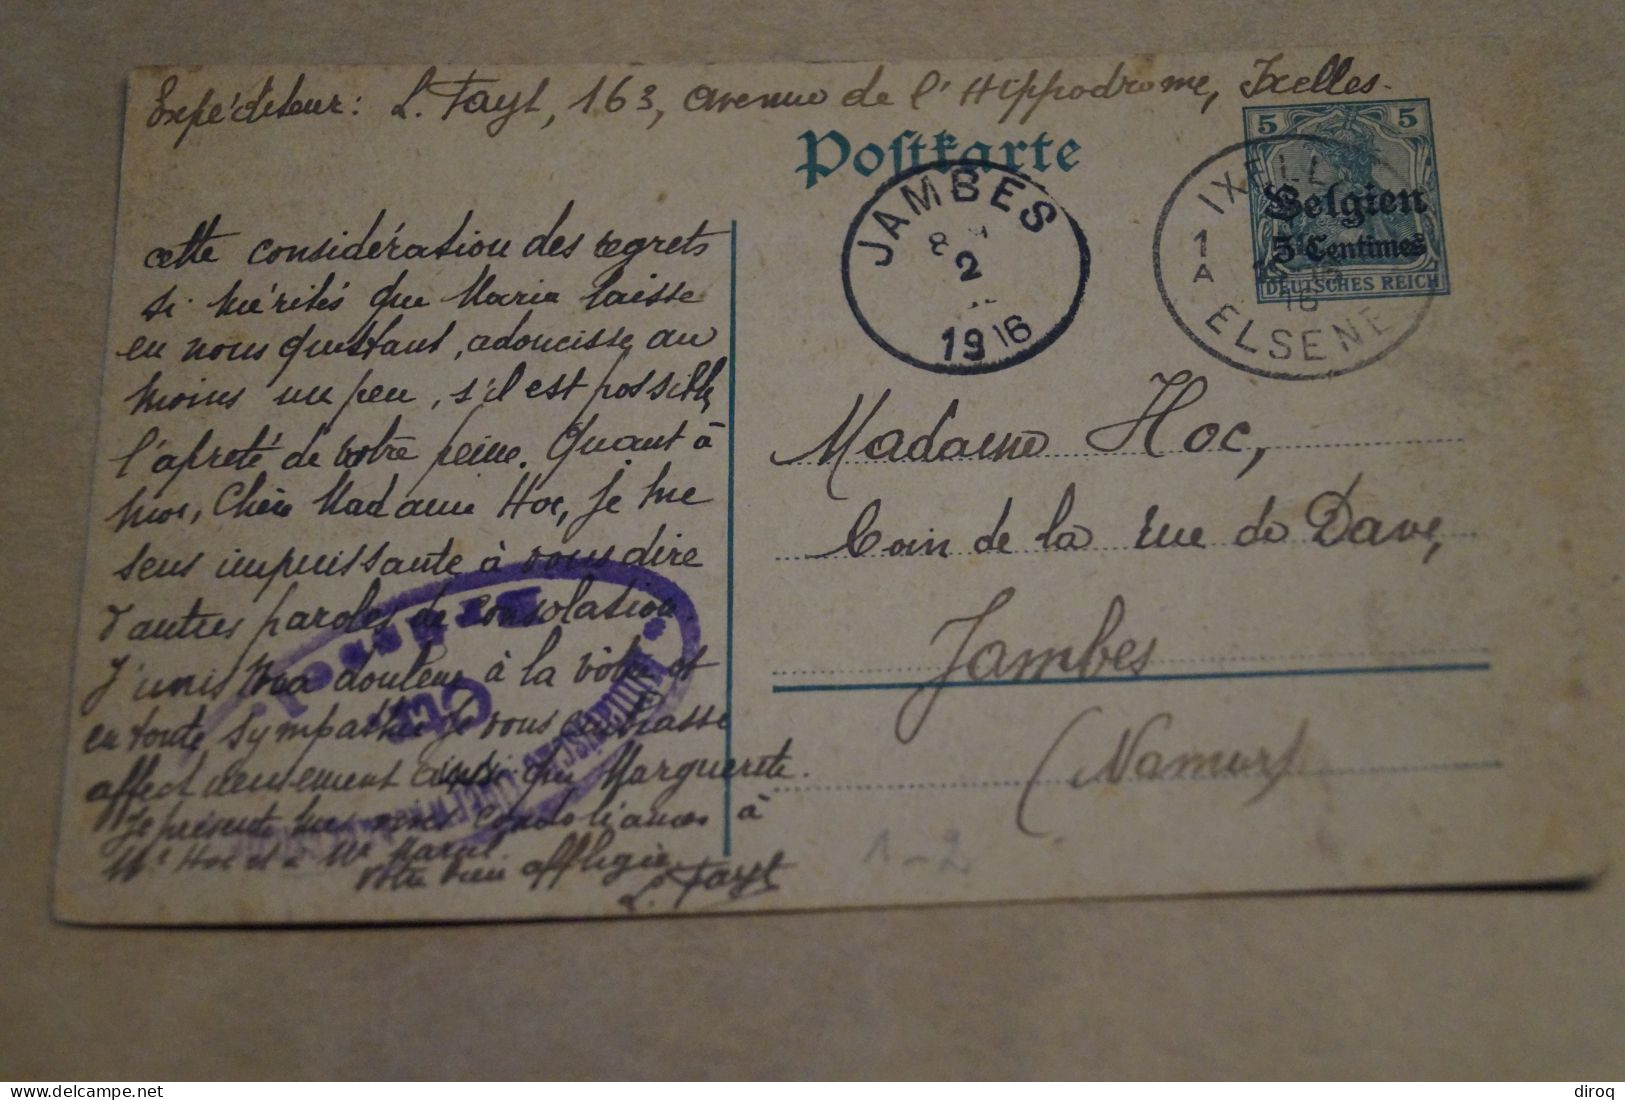 Expéditeur: L. Fayt, 163, avenue de l'Hippodrome, Ixelles.
Postkarte
5 5
Belgien
5 Centimes
DEUTSCHES REICH
IXELL
1
A
16
ELSENE
JAMBES
8
2
1916
cette considération des regrets
si mérités que Marie laisse
en nous quittant, adoucisse au
moins un peu, s'il est possible,
l'apreté de votre peine. Quant à
moi, Chère Madame Hoc, je me
sens impuissante à vous dire
d'autres paroles de consolation.
J'unis ma douleur à la vôtre et
en toute sympathie je vous embrasse
affectueusement ainsi que Marguerite.
Je présente mes condoléances à
Mr Hoc et à Mr Marcel.
Votre bien affligée
L. Fayt
Madame Hoc,
Coin de la rue de Dave,
Jambes
(Namur)
1-2
diroq